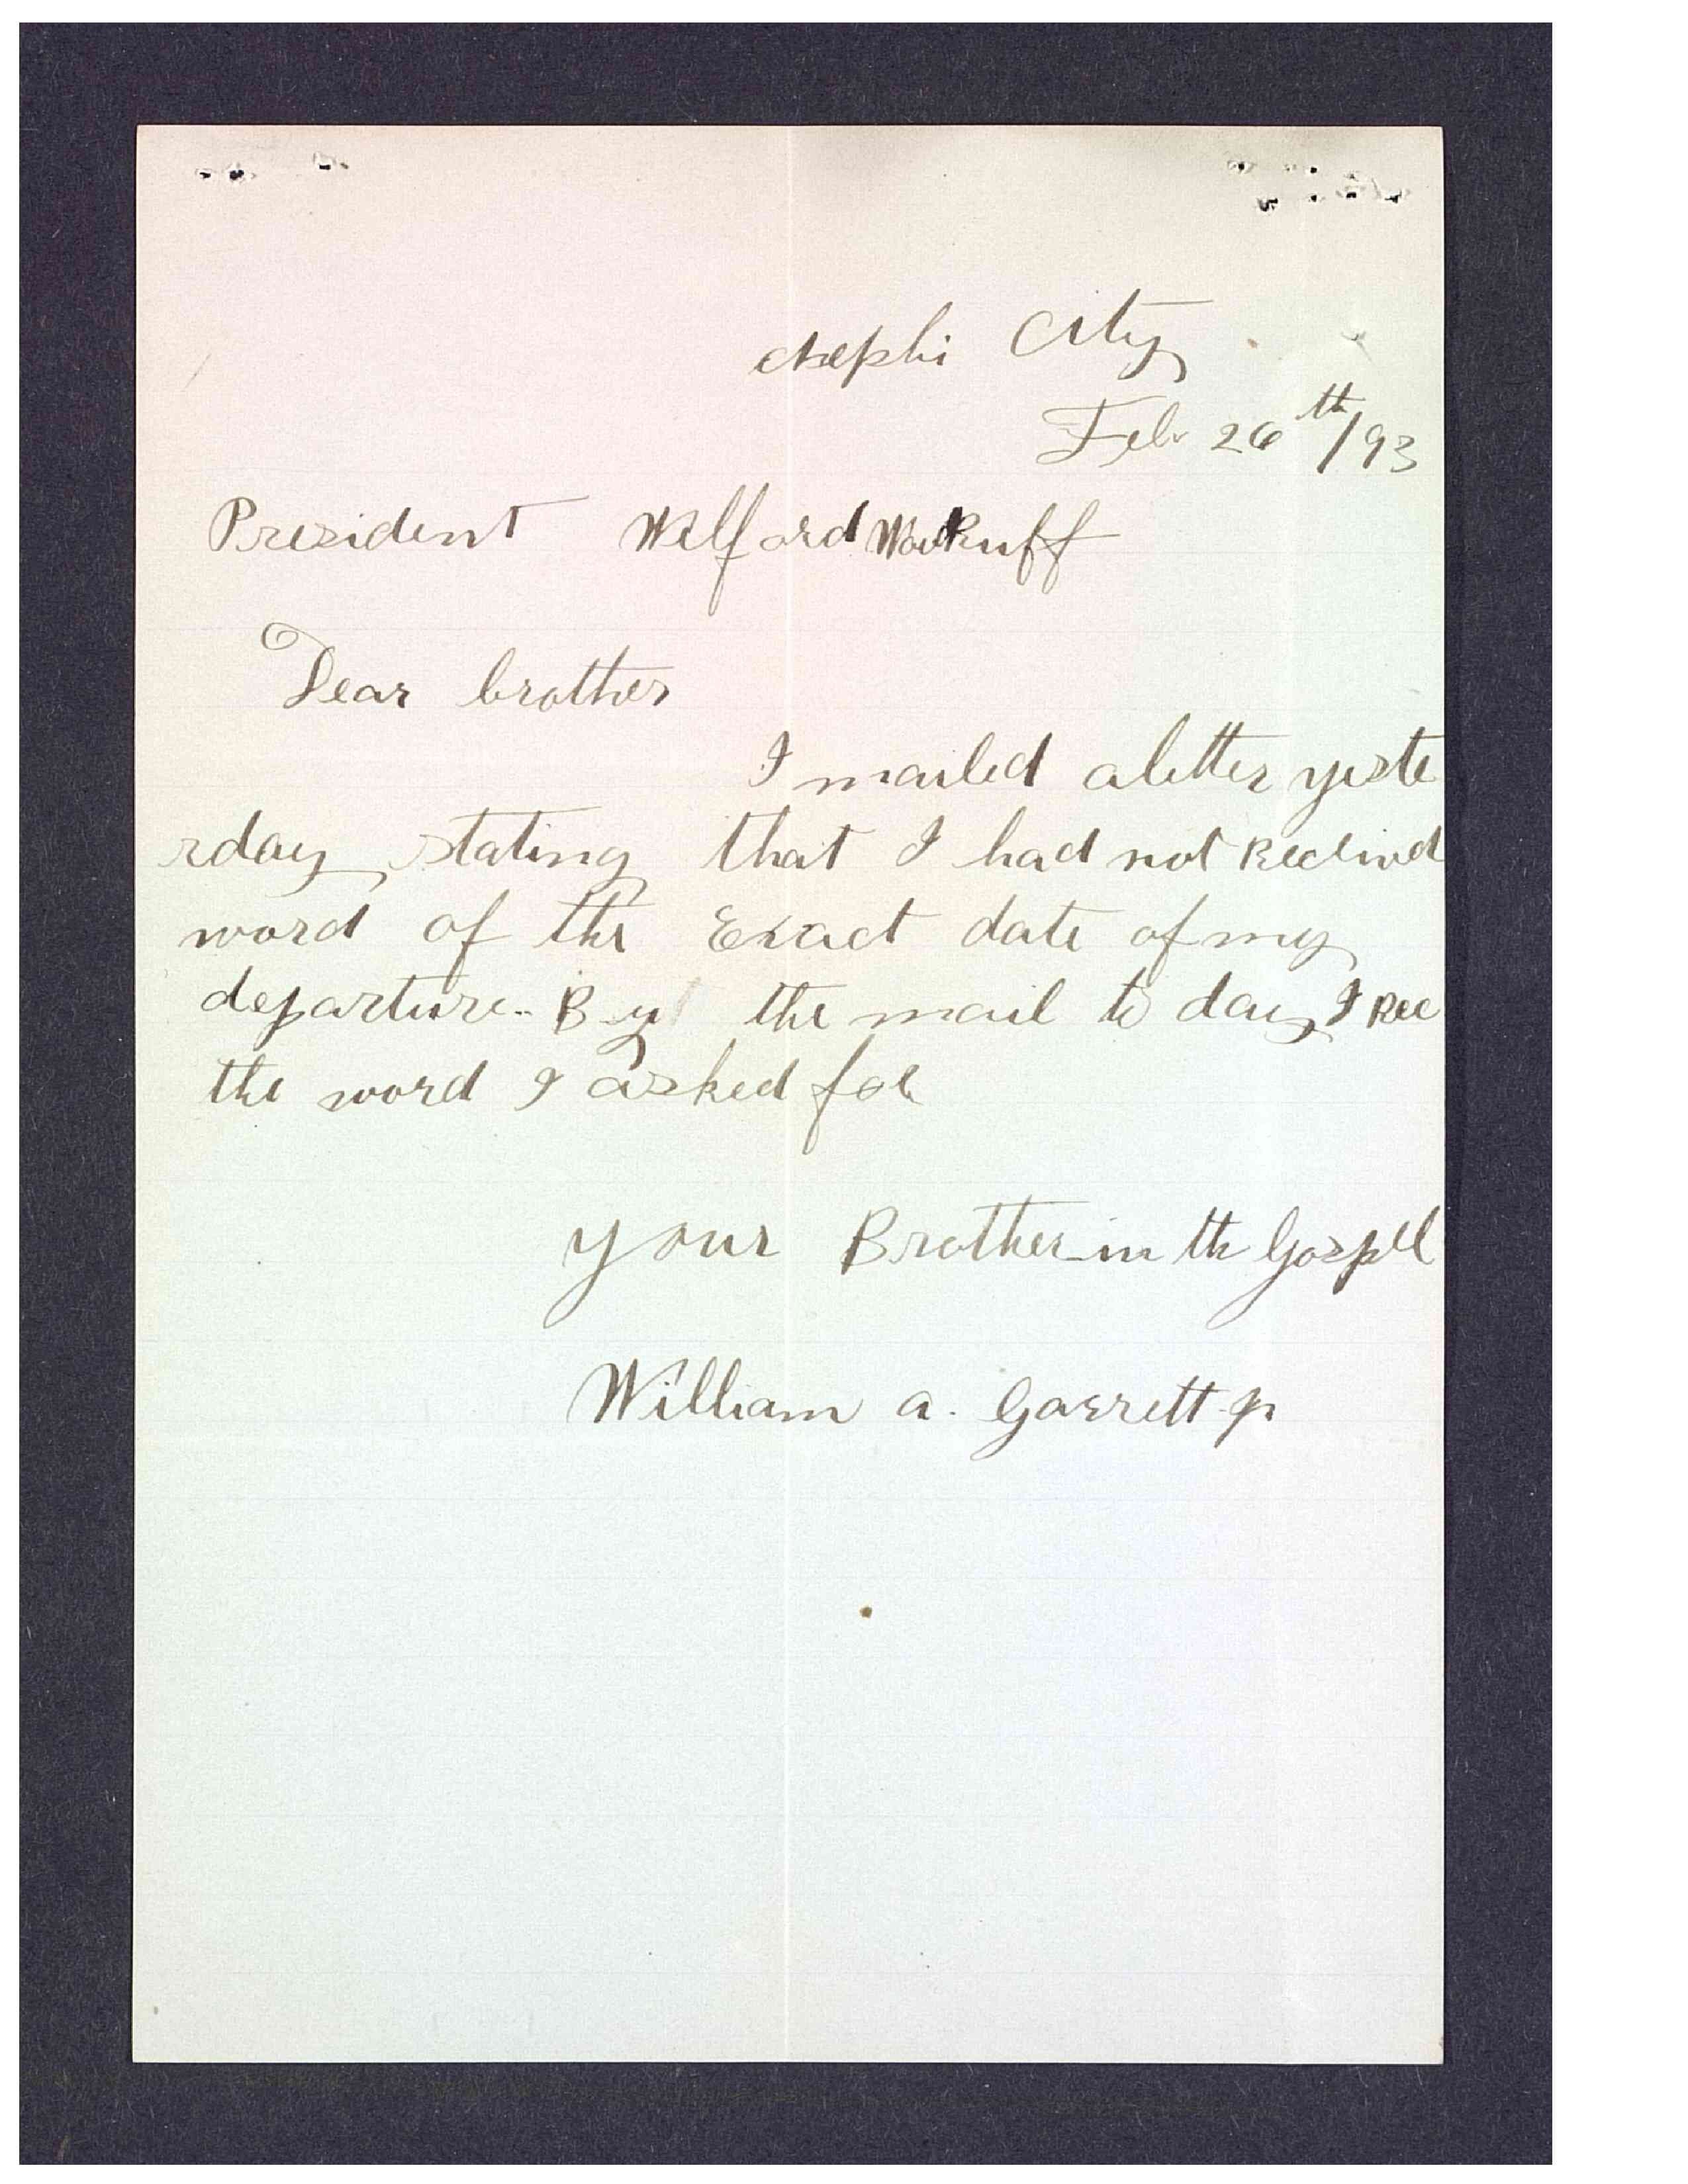 Nephi City
Feb 26th/93
President Wilford Woodruff
Dear brother
I mailed a letter yeste
rday stating that I had not Received
word of the Exact date of my
departure. By the mail to day I Rec
the word I asked for
your Brother in the Gospel
William A. Garrett Jr